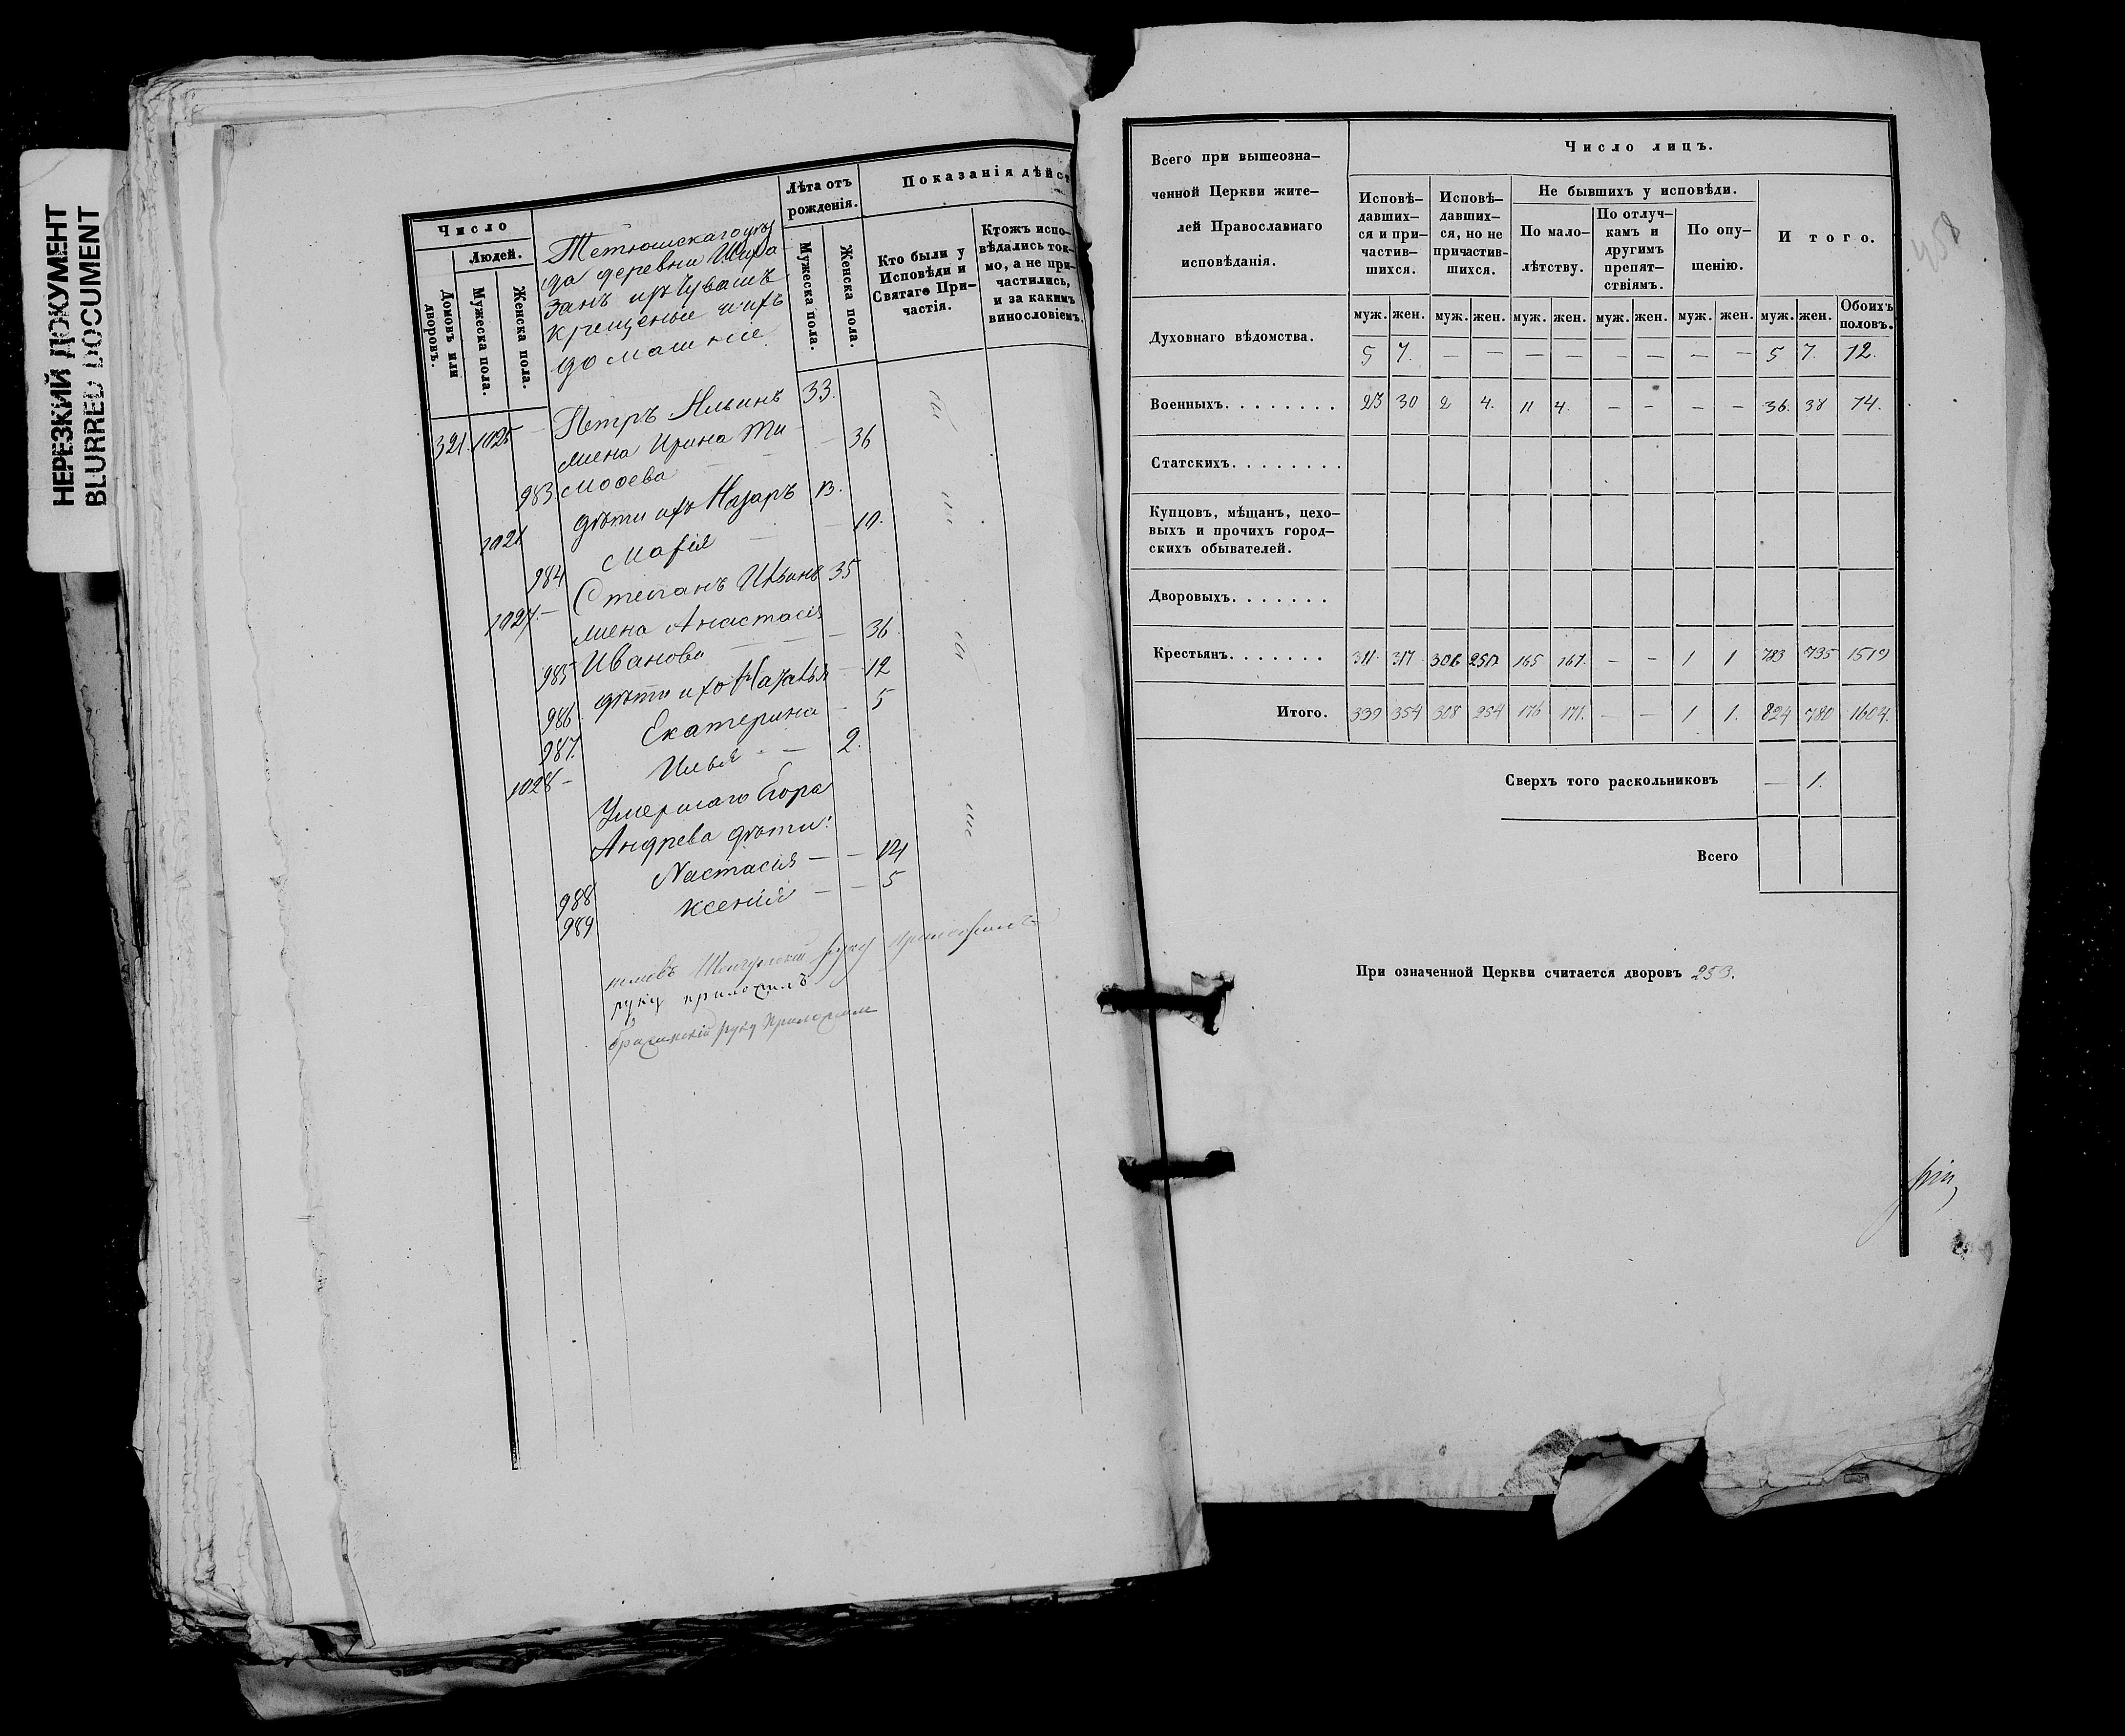 НЕРЕЗКИЙ ДОКУМЕНТ
BLURRED DOCUMENT
Число
Людей.
Домовъ или дворовъ.
Мужеска пола.
Женска пола.
Лѣта отъ рожденія.
Мужеска пола.
Женска пола.
Показанія дѣйст
Кто были у Исповѣди и Святаго Причастія.
Ктожъ исповѣдались токмо, а не причастились, и за какимъ винословіемъ.
Тетюшскаго уѣз
да деревни
занъ изъ Чувашъ
крещеные и ихъ
домашніе
321. 1025 — Петръ Ильинъ 33.
жена Ирина Ти
983 моѳеева — 36
1026 дѣти ихъ Назаръ 13.
984 Марія — 10.
1027. — Степанъ Ильинъ 35
жена Анастасія
985 Иванова — 36
986 дѣти ихъ Наталья — 12
987. Екатерина — 5
1028 — Илья — 2.
Умершаго Егора
Андрева дѣти:
988 Настасія — 14
989 Ксенія — 5
руку приложилъ
руку приложилъ
руку приложилъ
458
Всего при вышеозна—
ченной Церкви жите—
лей Православнаго
исповѣданія.
Число лицъ.
Исповѣ—давших—ся и при—частив—шихся.
Исповѣ—давших—ся, но не причастив—шихся.
Не бывшихъ у исповѣди.
По мало—лѣтству.
По отлуч—камъ и другимъ препят—ствіямъ.
По опу—щенію.
Итого.
муж. жен. муж. жен. муж. жен. муж. жен. муж. жен. муж. жен. Обоихъ половъ.
Духовнаго вѣдомства. 5 7. — — — — — — — — 5 7. 12.
Военныхъ. . . . . . . . 23 30 2 4. 11 4. — — — — 36. 38 74.
Статскихъ. . . . . . . . .
Купцовъ, мѣщанъ, цехо—
выхъ и прочихъ город—
скихъ обывателей.
Дворовыхъ. . . . . . .
Крестьянъ. . . . . . . 311. 317 306 250 165 167. — — 1 1 783 735 1518
Итого. 339 354 308 254 176 171. — — 1 1. 824 780 1604.
Сверхъ того раскольниковъ — 1.
Всего
При означенной Церкви считается дворовъ 253.